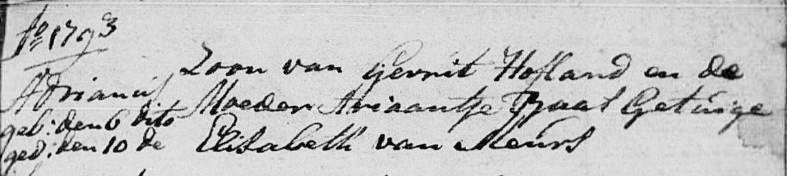 Ao 1793
Adrianus Zoon van Gerrit Hofland en de
geb: den 6 dito Moeder Ariaantje Praat Getuige
ged: den 10 de Elisabeth van Meurs